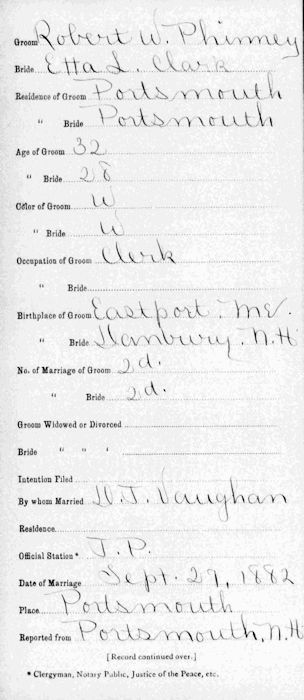 Groom Robert W. Phinney
Bride Etta L. Clark
Residence of Groom Portsmouth
" Bride Portsmouth
Age of Groom 32
" Bride 28
Color of Groom W
" Bride W
Occupation of Groom Clerk
" Bride
Birthplace of Groom Eastport, Me.
" Bride Danbury, N.H.
No. of Marriage of Groom 2d.
" Bride 2d.
Groom Widowed or Divorced
Bride " " "
Intention Filed
By whom Married W. T. Vaughan
Residence
Official Station * J. P.
Date of Marriage Sept. 29, 1882
Place Portsmouth
Reported from Portsmouth, N.H
[Record continued over.]
* Clergyman, Notary Public, Justice of the Peace, etc.